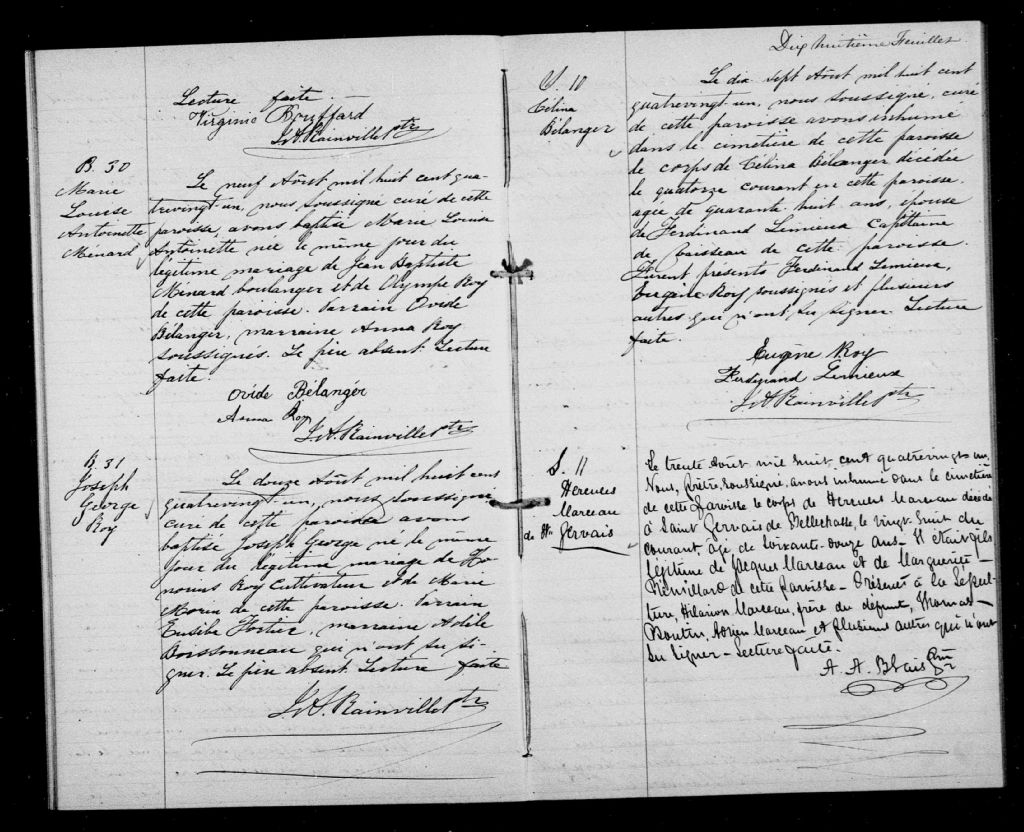 Lecture faite
Virginie Rouffard
J. A. Rainville Ptr
B. 30
Marie
Louise
Antoinette
Menard
Le neuf Août mil huit cent qua-
trevingt-un, nous, soussigné curé de cette
paroisse, avons baptisé Marie Louise
Antoinette née le même jour du
légitime mariage de Jean Baptiste
Ménard boulanger et de Olympe Roy
de cette paroisse. Parrain Ovide
Bélanger, marraine Anna Roy
soussignés. Le père absent. Lecture
faite.
Ovide Bélanger
Anna Roy
J. A. Rainville Ptr
B. 31
Joseph
George
Roy
Le douze Août mil huit cent
quatrevingt-un, nous, soussigné
curé de cette paroisse avons
baptisé Joseph George né le même
jour du légitime mariage de Ho-
norius Roy Cultivateur et de Marie
Morin de cette paroisse. Parrain
Eusèbe Fortier, marraine Adèle
Boissonneau qui n'ont su si-
gner. Le père absent. Lecture faite
J. A. Rainville Ptr
Dix huitième Feuillet
S. 10
Célina
Bélanger
Le dix sept Août mil huit cent
quatrevingt-un, nous soussigné, curé
de cette paroisse avons inhumé
dans le cimetière de cette paroisse
le corps de Célina Bélanger décédée
le quatorze courant en cette paroisse.
agée de quarante huit ans, épouse
de Ferdinand Lemieux Capitaine
de vaisseau de cette paroisse.
Furent présents Ferdinand Lemieux,
Eugène Roy soussignés et plusieurs
autres qui n'ont su signer. Lecture
faite.
Eugène Roy
Ferdinand Lemieux
J. A. Rainville Ptr
S. 11
Hercules
Marceau
de St. Gervais
Le trente Août mil huit cent quatrevingt-un,
Nous, Prêtre, soussigné, avons inhumé dans le cimetière
de cette Paroisse le corps de Hercules Marceau décédé
à Saint Gervais de Bellechasse, le vingt-huit du
courant, âgé de soixante-douze ans. Il était fils
légitime de Jacques Marceau et de Marguerite
de cette Paroisse - Présents à la sépul-
ture, Hilarion Marceau, frère du défunt, Thomas
Boutin, Adrien Marceau et plusieurs autres qui n'ont
su signer - Lecture faite.
A. A. Blais Ptr